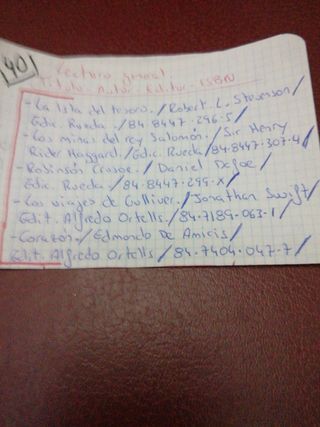 40
Lectura general
Titulo Autor Editor ISBN
- La Isla del tesoro. / Robert L. Stevenson /
Edic. Rueda. / 84-8447-296-5 /
- Las minas del rey Salomón. / Sir Henry
Rider Haggard. / Edic. Rueda / 84-8447-307-4 /
- Robinsón Crusoe. / Daniel Defoe /
Edic. Rueda. / 84-8447-299-X /
- Los viajes de Gulliver. / Jonathan Swift /
Edit. Alfredo Ortells. / 84-7189-063-1 /
- Corazón. / Edmondo De Amicis /
Edit. Alfredo Ortells / 84-7404-047-7 /